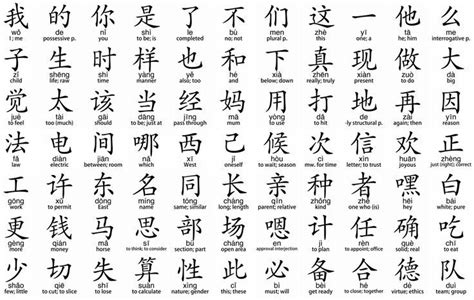 我 的 你 是 了 不 们 这 一 他 么
wǒ de nǐ shì le bù men zhè yī tā me
I ; me possessive p. you to be; is completed no; not plural p. this one; a he; him interrogative p.
子 生 时 样 也 和 下 真 现 做 大
zǐ shēng shí yàng yě hé xià zhēn xiàn zuò dà
child life; raw time manner also; too and below; down really; truly present to do big
觉 太 该 当 经 妈 用 打 地 再 因
jué tài gāi dāng jīng mā yòng dǎ de zài yīn
to feel too (much) should to be; just at pass through mum to use to hit -ly structural p. again; then reason
法 电 间 哪 西 己 候 次 信 欢 正
fǎ diàn jiān nǎ xī jǐ hòu cì xìn huān zhèng
law electric between; room which West oneself to wait; season m. for time letter; to trust joyous just (right); correct
工 许 东 名 同 长 亲 种 者 嘿 白
gōng xǔ dōng míng tóng cháng qīn zhǒng zhě hēi bái
work to permit East name same; similar long; length parent; relative kind one who (is) hey white; pure
更 钱 马 思 部 场 嗯 计 任 确 吃
gèng qián mǎ sī bù chǎng jì rèn què chī
more money horse to think; to consider section; part open area approval interjection to plan to appoint; office solid; real to eat
少 切 失 算 性 此 必 备 合 德 队
shǎo qiē shī suàn xìng cǐ bì bèi hé dé duì
few; little to cut; to slice to lose to calculate nature; gender this; these must; will get ready to close; together virtue; ethics team; group